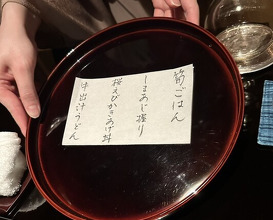 筍ごはん
しまあじ握り
桜えびかきあげ丼
牛出汁うどん